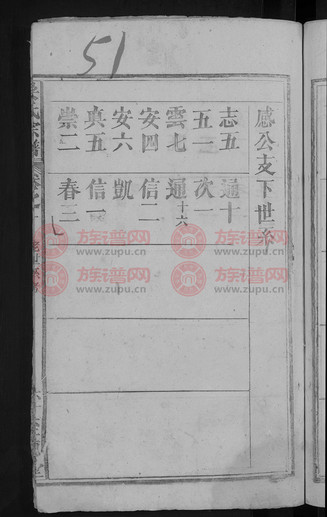 51
感公支下世系
志五 通十
五一 次一
雲七 通十六
安四 信二
安六 凱
真五 信一
崇二 春二
宗譜
族谱网
www.zupu.cn
族谱网
www.zupu.cn
族谱网
www.zupu.cn